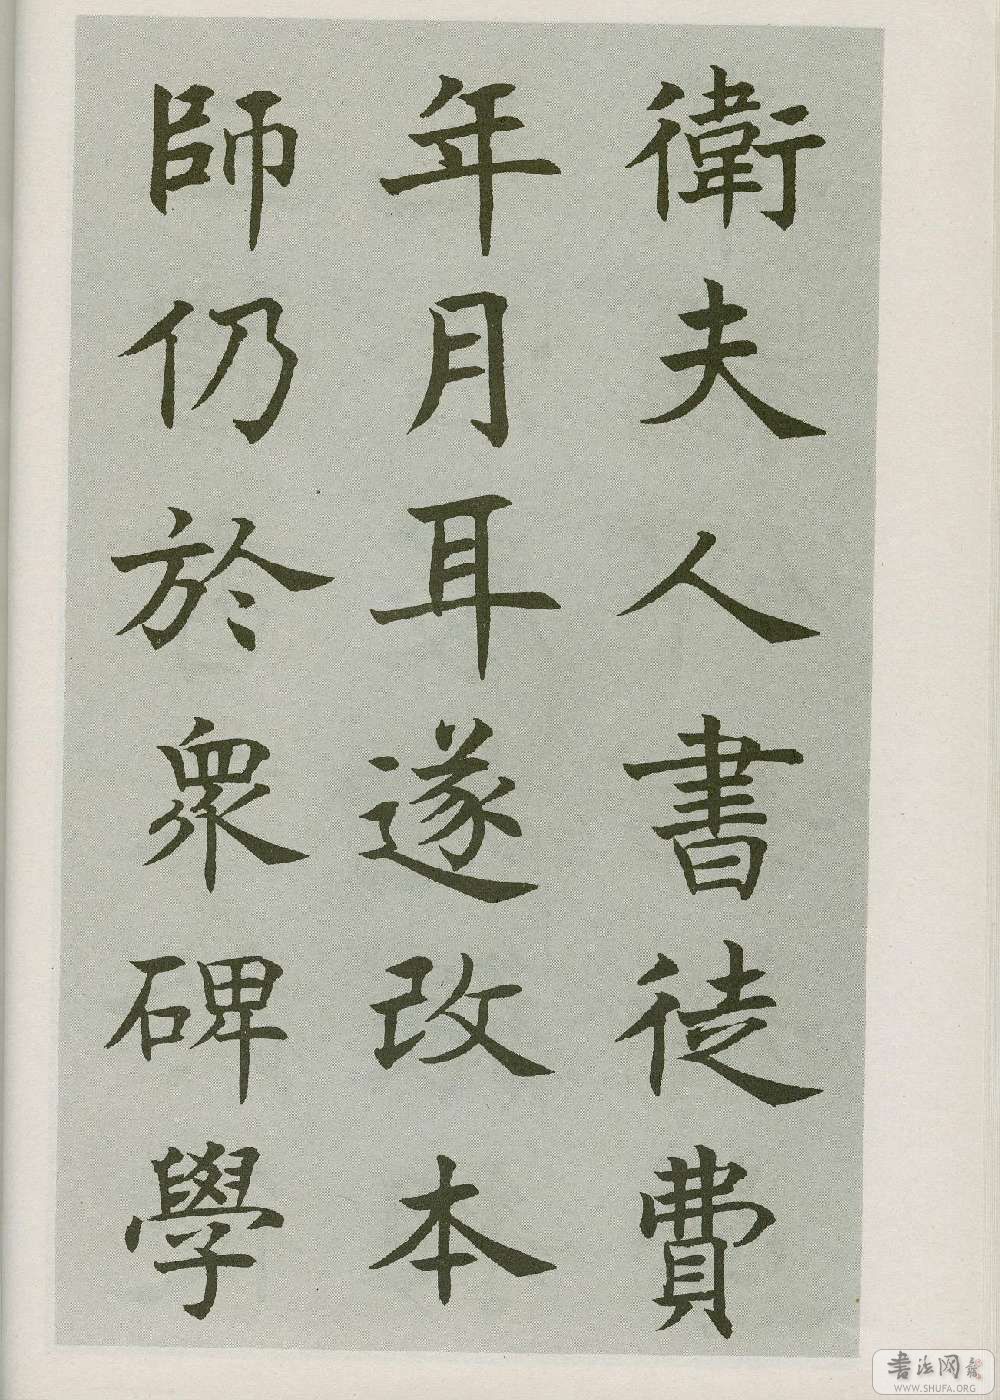 衛夫人書徒費
年月耳遂改本
師仍於衆碑學
書法网
WWW.SHUFA.ORG